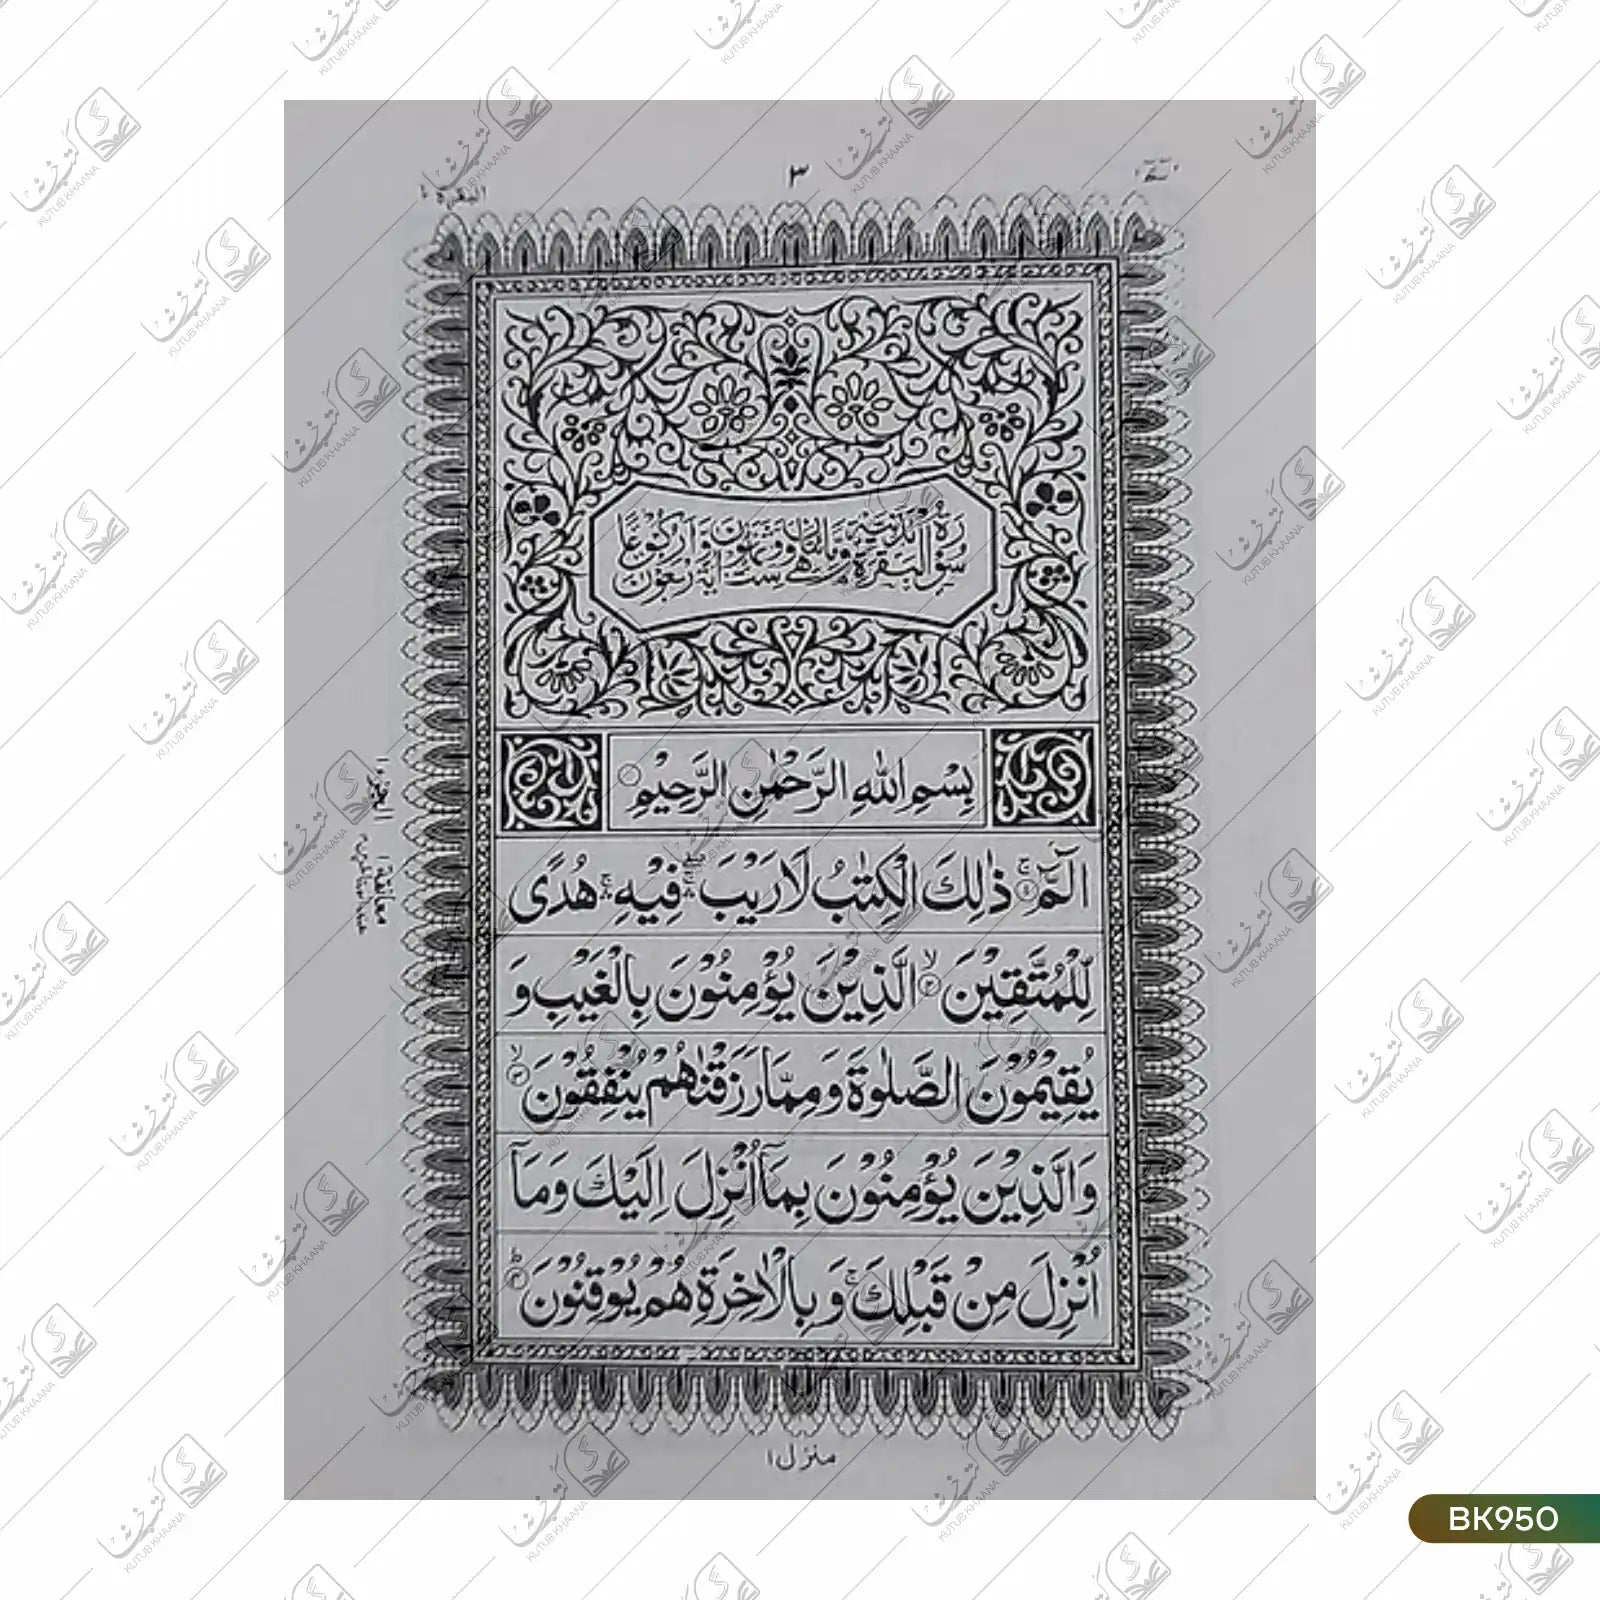 البقرة ٢
٣
سُوْرَةُ الْبَقَرَةِ مَدَنِيَّةٌ وَّهِيَ مِائَتَانِ وَسِتٌّ وَّثَمَانُوْنَ اٰيَةً وَّاَرْبَعُوْنَ رُكُوْعًا
بِسْمِ اللّٰهِ الرَّحْمٰنِ الرَّحِيْمِ
الٓمّٓ ۚ۝۱ ذٰلِكَ الْكِتٰبُ لَا رَيْبَ ۛ فِيْهِ ۛ هُدًى
لِّلْمُتَّقِيْنَ ۙ۝۲ الَّذِيْنَ يُؤْمِنُوْنَ بِالْغَيْبِ وَ
يُقِيْمُوْنَ الصَّلٰوةَ وَمِمَّا رَزَقْنٰهُمْ يُنْفِقُوْنَ ۙ۝۳
وَالَّذِيْنَ يُؤْمِنُوْنَ بِمَآ اُنْزِلَ اِلَيْكَ وَمَآ
اُنْزِلَ مِنْ قَبْلِكَ ۚ وَبِالْاٰخِرَةِ هُمْ يُوْقِنُوْنَ ؕ۝۴
الجزء ۱
معانقة ۱
منزل ۱
BK950
KUTUB KHAANA